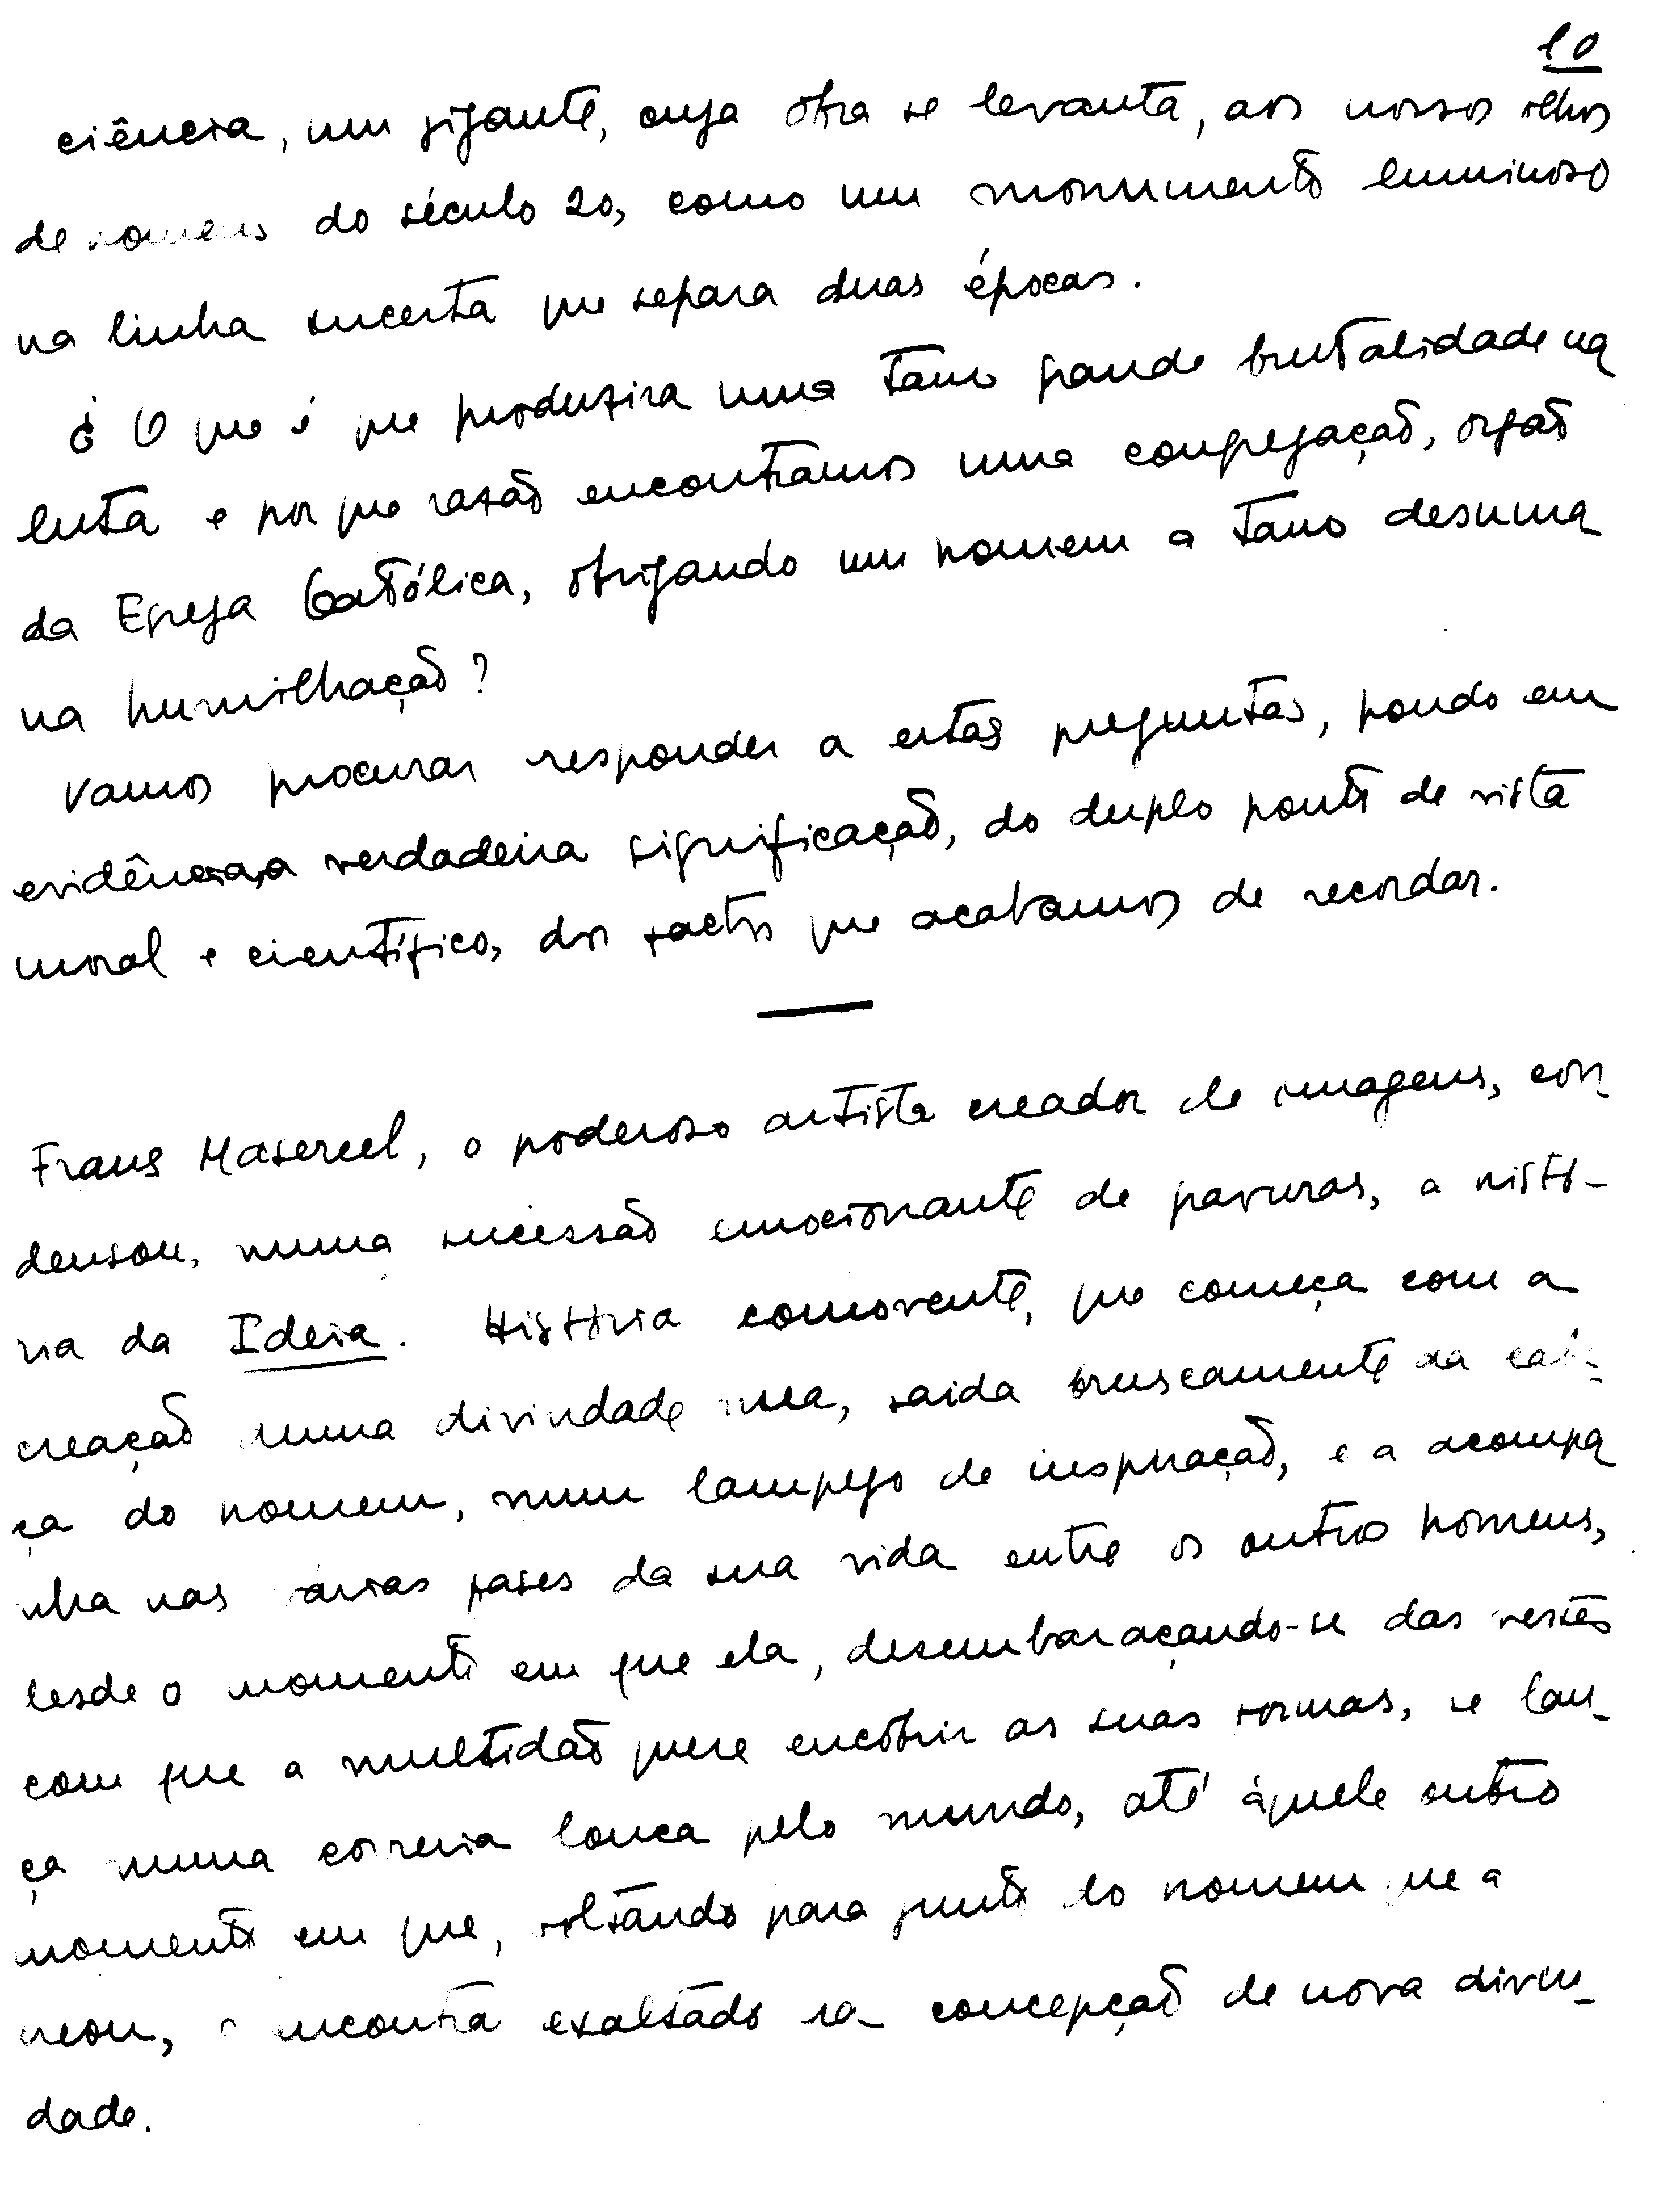 10
ciência, um gigante, cuja obra se levanta, aos nossos olhos
de homens do século 20, como um monumento luminoso
na linha incerta que separa duas épocas.
O que é que produzira uma tam grande brutalidade na
luta e por que razão encontramos uma congregação, orgão
da Egreja Católica, obrigando um homem a tam desuma
na humilhação?
Vamos procurar responder a estas preguntas, pondo em
evidência, a verdadeira significação, do duplo ponto de vista
moral e científico, dos factos que acabamos de recordar.
Frans Masereel, o poderoso artista creador de imagens, con-
densou, numa sucessão emocionante de gravuras, a histó-
ria da Ideia. História comovente, que começa com a
creação duma divindade nua, saida bruscamente da cabe-
ça do homem, num lampejo de inspiração, e a acompa
nha nas várias fases da sua vida entre os outros homens,
desde o momento em que ela, desembaraçando-se das vestes
com que a multidão quere encobrir as suas formas, se lan-
ça numa correria louca pelo mundo, até àquele outro
momento em que, voltando para junto do homem que a
creou, o encontra exaltado na concepção de nova divin-
dade.